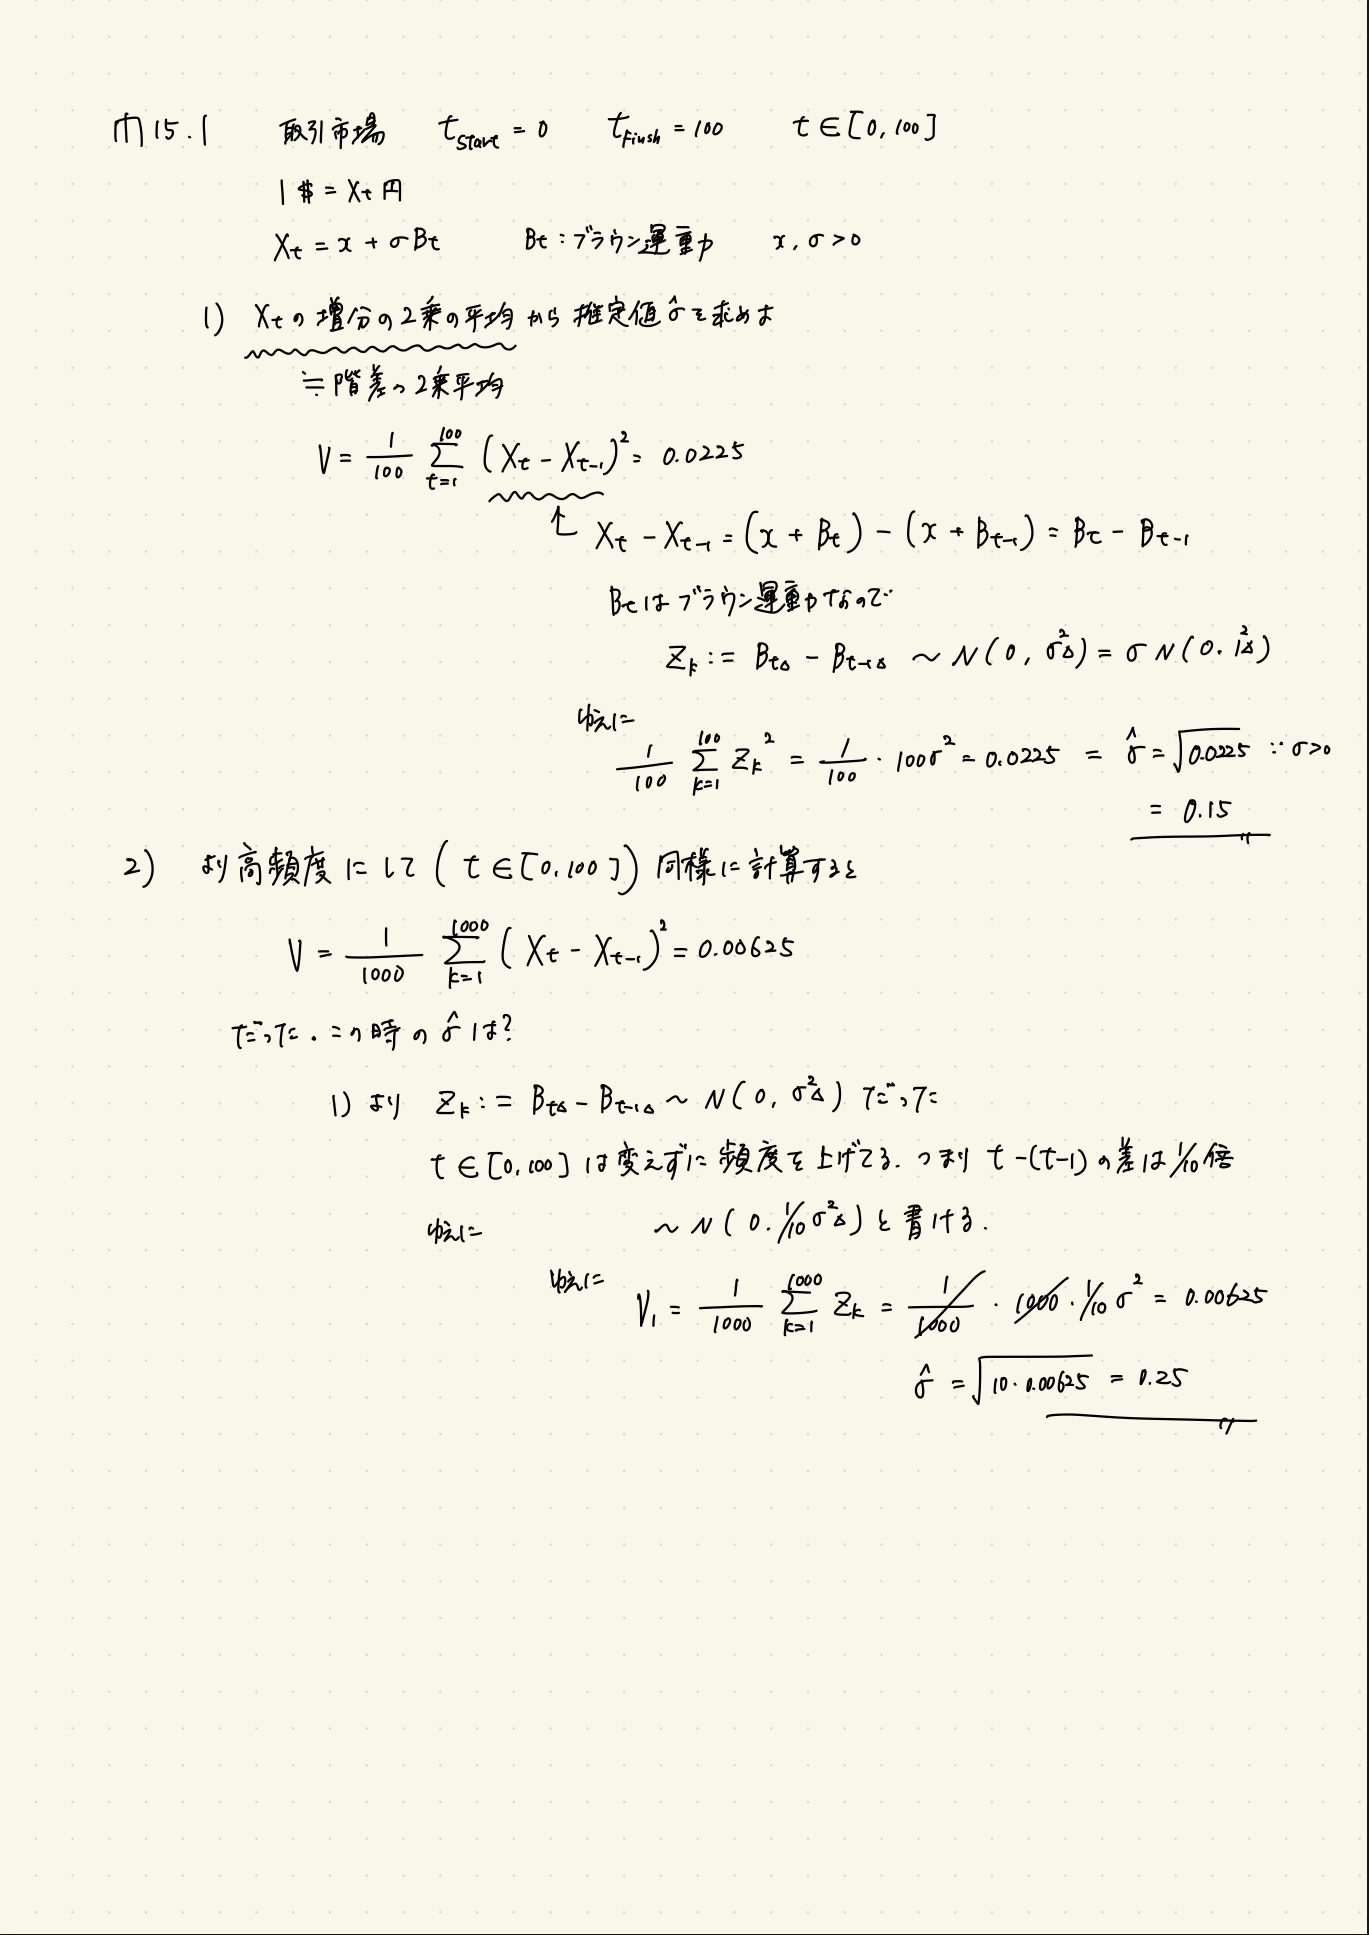 問15.1 取引市場 t_start = 0 t_finish = 100 t ∈ [0, 100]
1$ = X_t 円
X_t = x + σB_t B_t : ブラウン運動 x, σ > 0
1) X_tの増分の2乗の平均から推定値σ̂を求めよ
≒ 階差の2乗平均
V = 1/100 Σ_{t=1}^{100} (X_t − X_{t-1})² = 0.0225
X_t − X_{t-1} = (x + B_t) − (x + B_{t-1}) = B_t − B_{t-1}
B_tはブラウン運動なので
Z_k := B_{tΔ} − B_{t-1Δ} ~ N(0, σ²Δ) = σN(0. 1²Δ)
ゆえに
1/100 Σ_{k=1}^{100} Z_k² = 1/100 · 100σ² = 0.0225 = σ̂ = √0.0225 ∵ σ>0
= 0.15
2) より高頻度にして (t ∈ [0, 100]) 同様に計算すると
V = 1/1000 Σ_{k=1}^{1000} (X_t − X_{t-1})² = 0.00625
だった. この時のσ̂は?
1) より Z_k := B_{tΔ} − B_{t-1Δ} ~ N(0, σ²Δ) だった
t ∈ [0, 100] は変えずに頻度を上げてる. つまり t-(t-1) の差は 1/10 倍
ゆえに ~ N(0. 1/10 σ²Δ) と書ける.
ゆえに V₁ = 1/1000 Σ_{k=1}^{1000} Z_k = 1/1000 · 1000 · 1/10 σ² = 0.00625
σ̂ = √10·0.00625 = 0.25